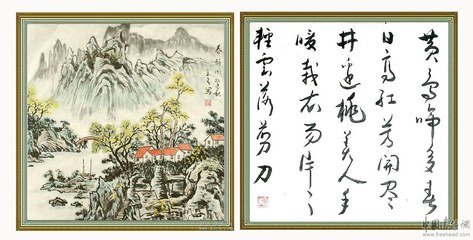 黄鸟啼多春
日高红芳开尽
井边桃美人手
暖裁衣易片片
轻云落剪刀
www.freehead.com